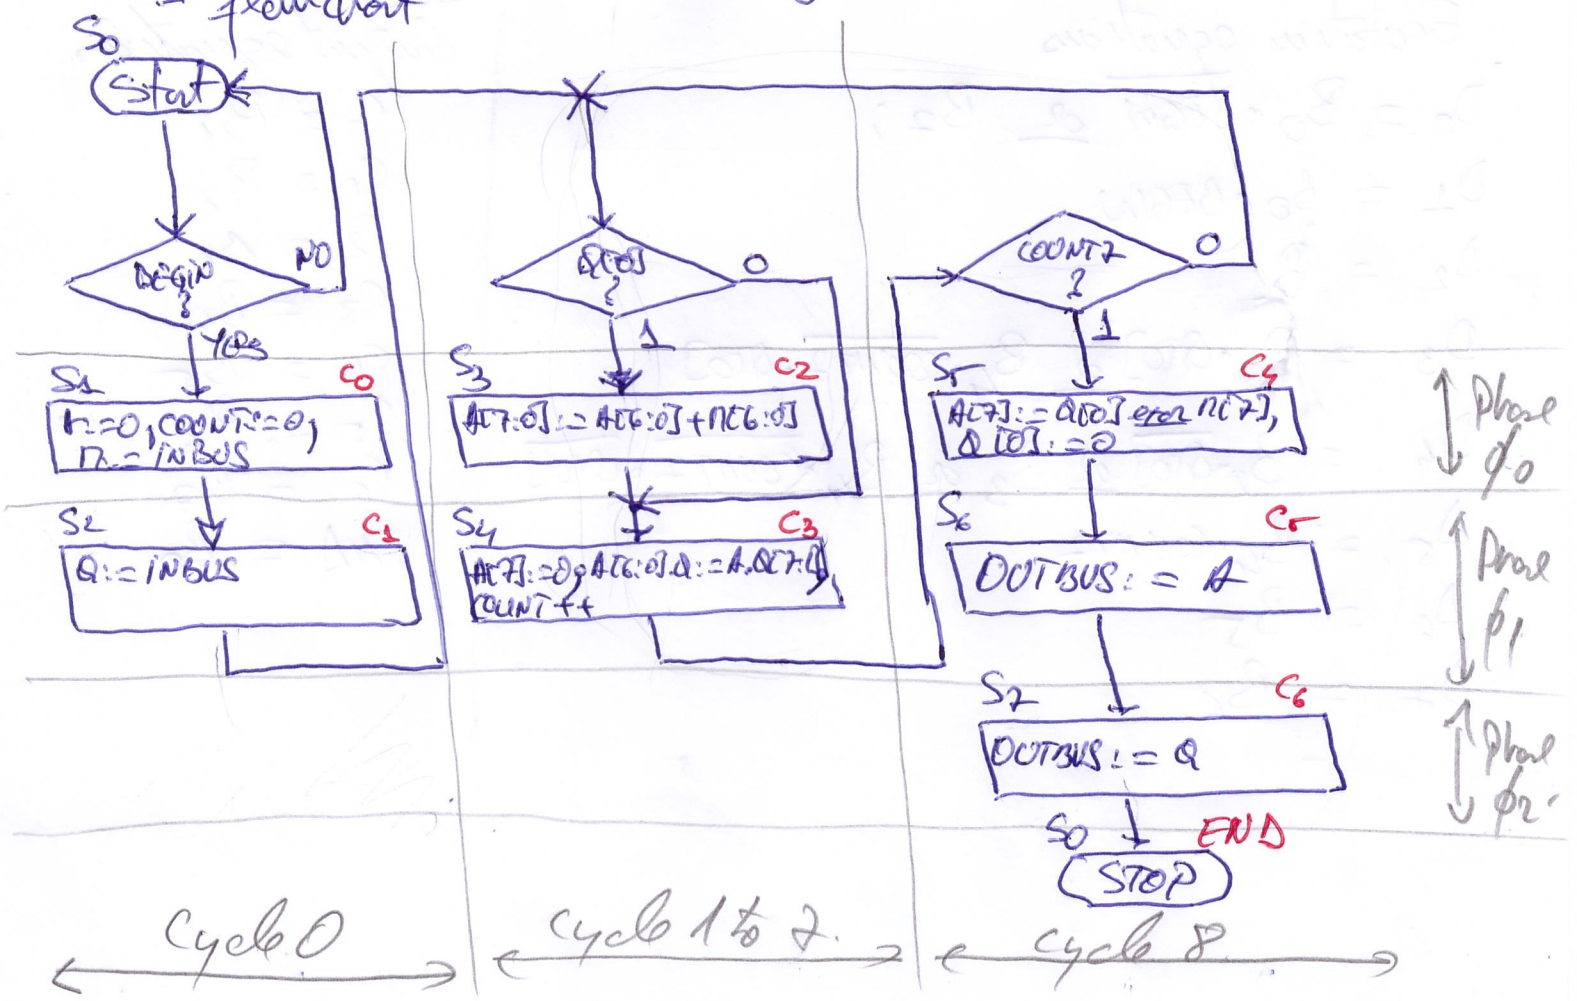 flowchart
S0
Start
BEGIN
?
NO
YES
S1
C0
A:=0, COUNT:=0,
M:=INBUS
S2
C1
Q:=INBUS
Q[0]
?
0
1
S3
C2
A[7:0]:=A[6:0]+M[6:0]
S4
C3
A[7]:=0, A[6:0].Q:=A.Q[7:1],
COUNT++
COUNT7
?
0
1
S5
C4
A[7]:=Q[0] exor M[7],
Q[0]:=0
S6
C5
OUTBUS:=A
S7
C6
OUTBUS:=Q
S0
END
STOP
Phase
ϕ0
Phase
ϕ1
Phase
ϕ2
Cycle 0
Cycle 1 to 7
Cycle 8